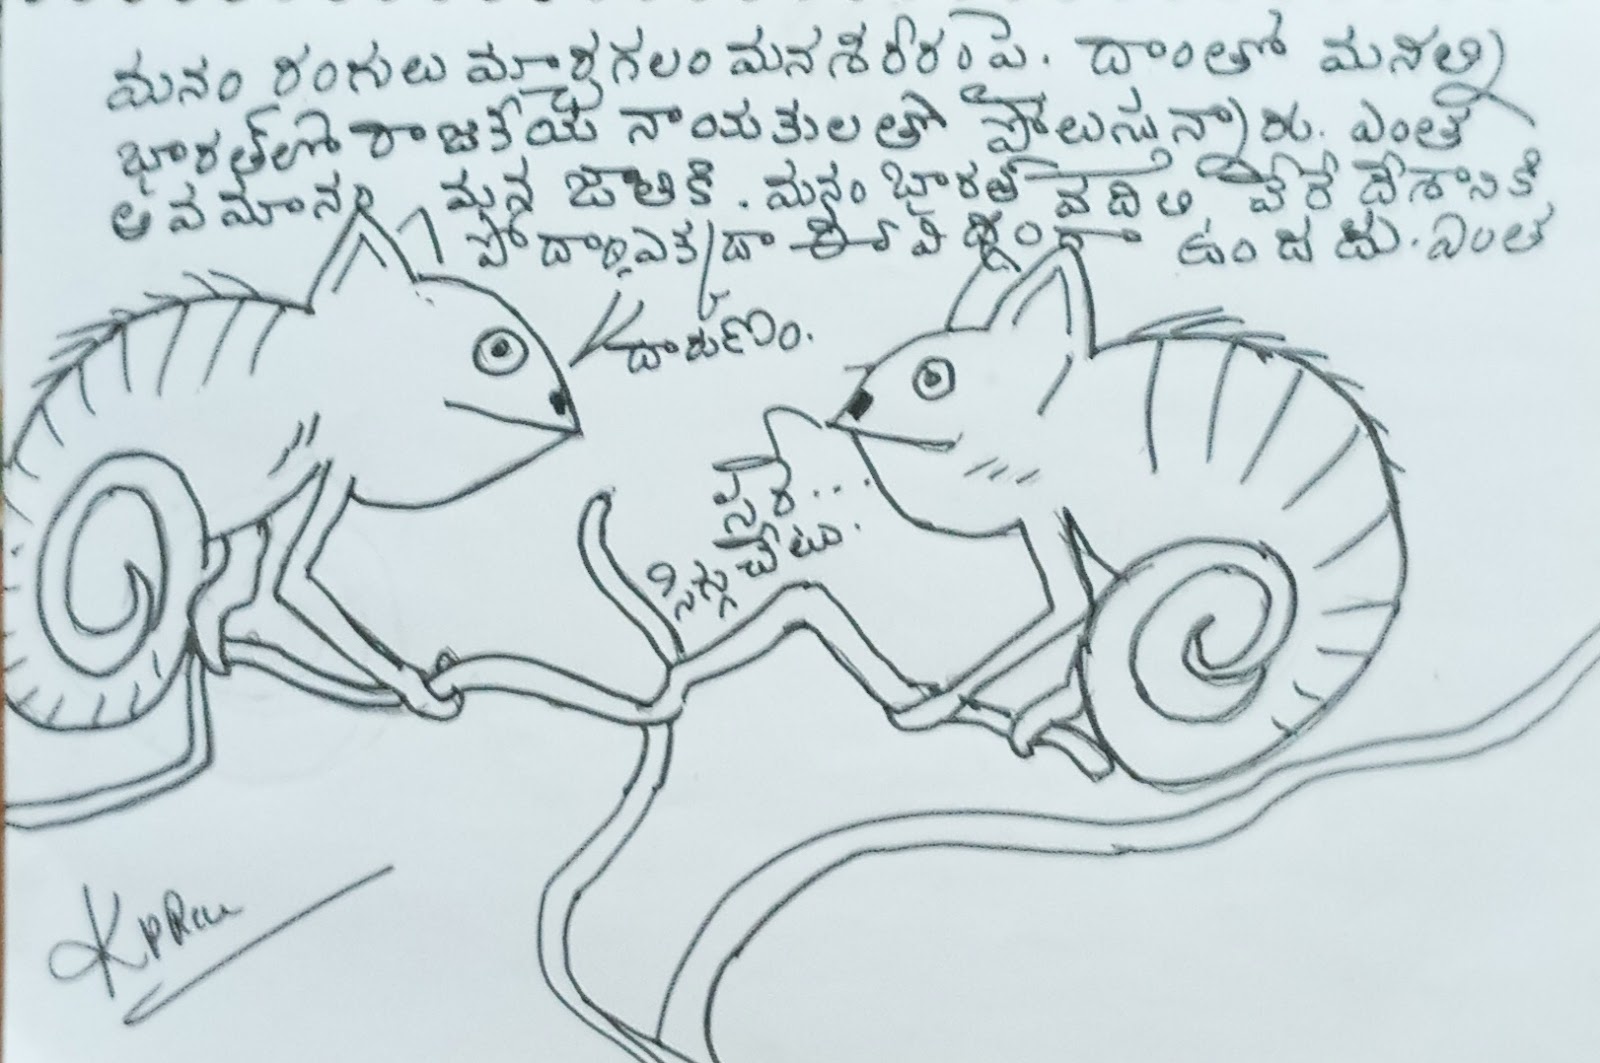 మనం రంగులు మార్చగలం మన శరీరంపై. దాంతో మనల్ని
భారత్‌లో రాజకీయ నాయకులతో పోలుస్తున్నారు. ఎంత
అవమానం మన జాతికి. మనం భారత్ వదిలి వేరే దేశానికి
పోదాం, ఎక్కడా ఉండదు. ఎంత
దారుణం.
సారె...
చేటు.
KPRao